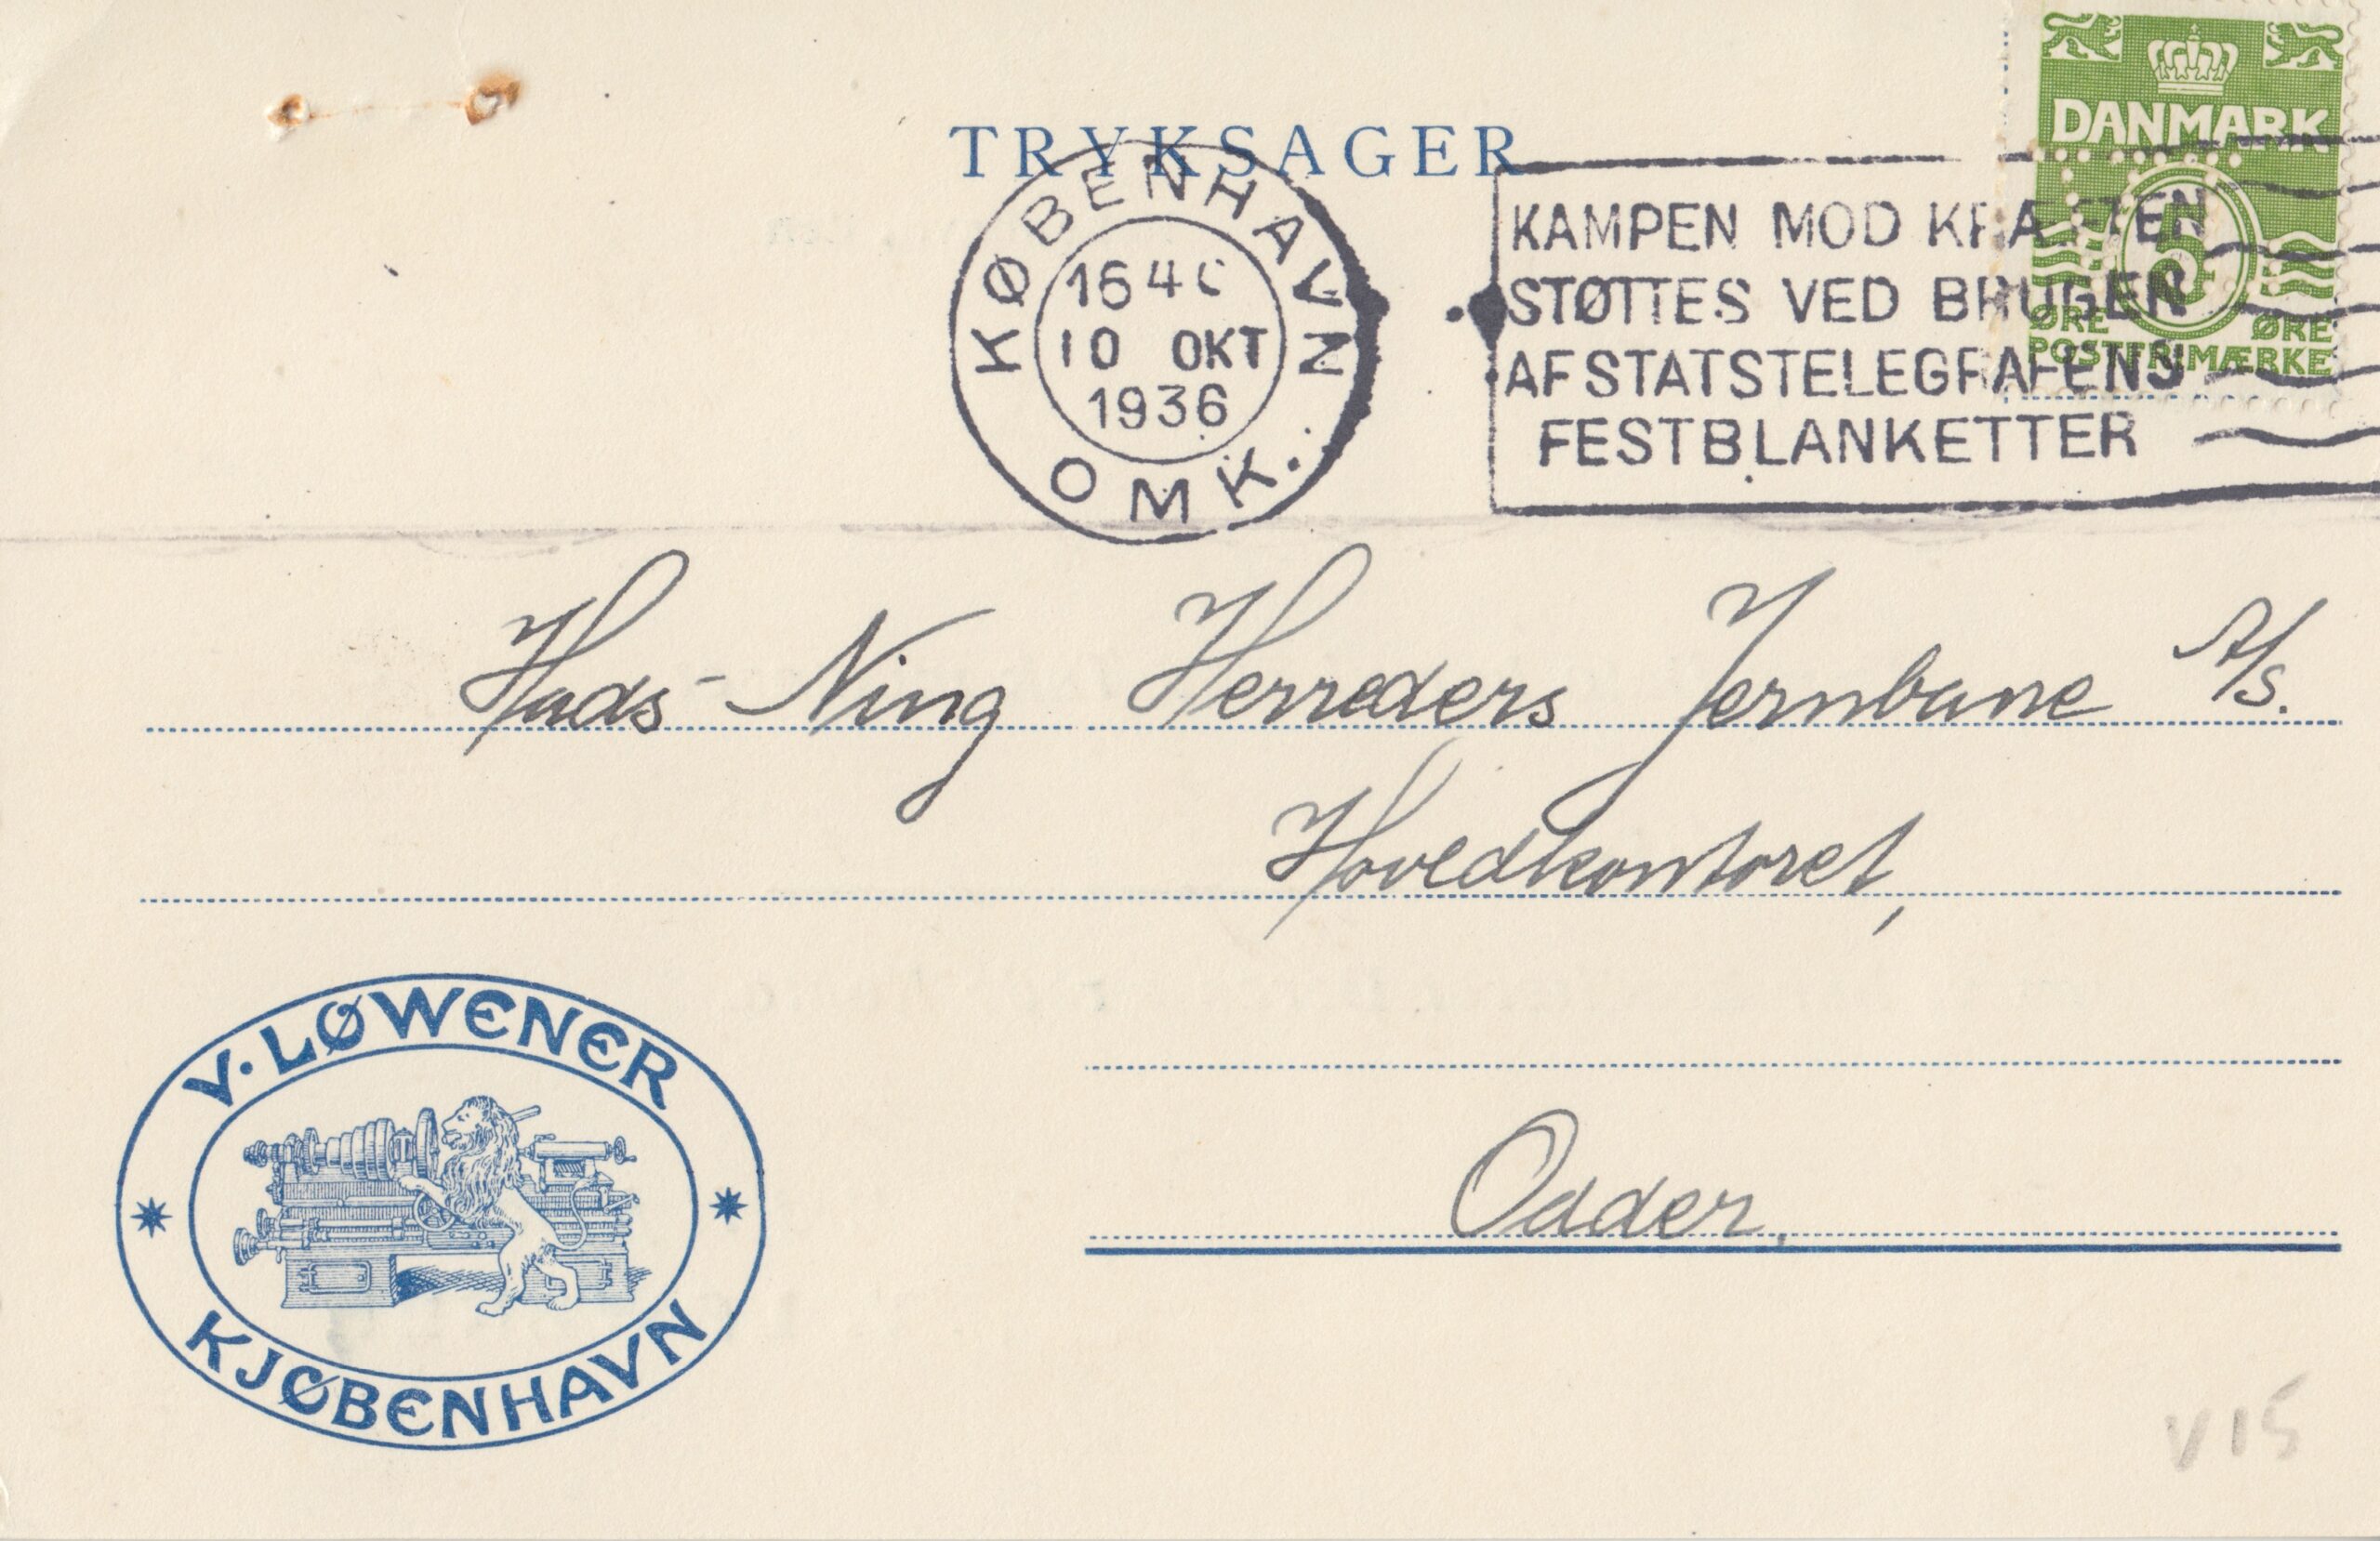 TRYKSAGER
DANMARK
5
ØRE ØRE
POSTFRIMÆRKE
KØBENHAVN
164
10 OKT
1936
OMK.
KAMPEN MOD KRÆFTEN
STØTTES VED BRUGEN
AF STATSTELEGRAFENS
FESTBLANKETTER
Hads-Ning Herreders Jernbane A/S.
Hovedkontoret,
Odder.
V. LØWENER
KJØBENHAVN
V15